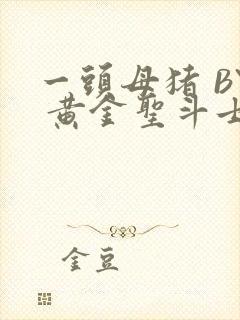 一頭母猪 BY
黄金聖斗士
金豆